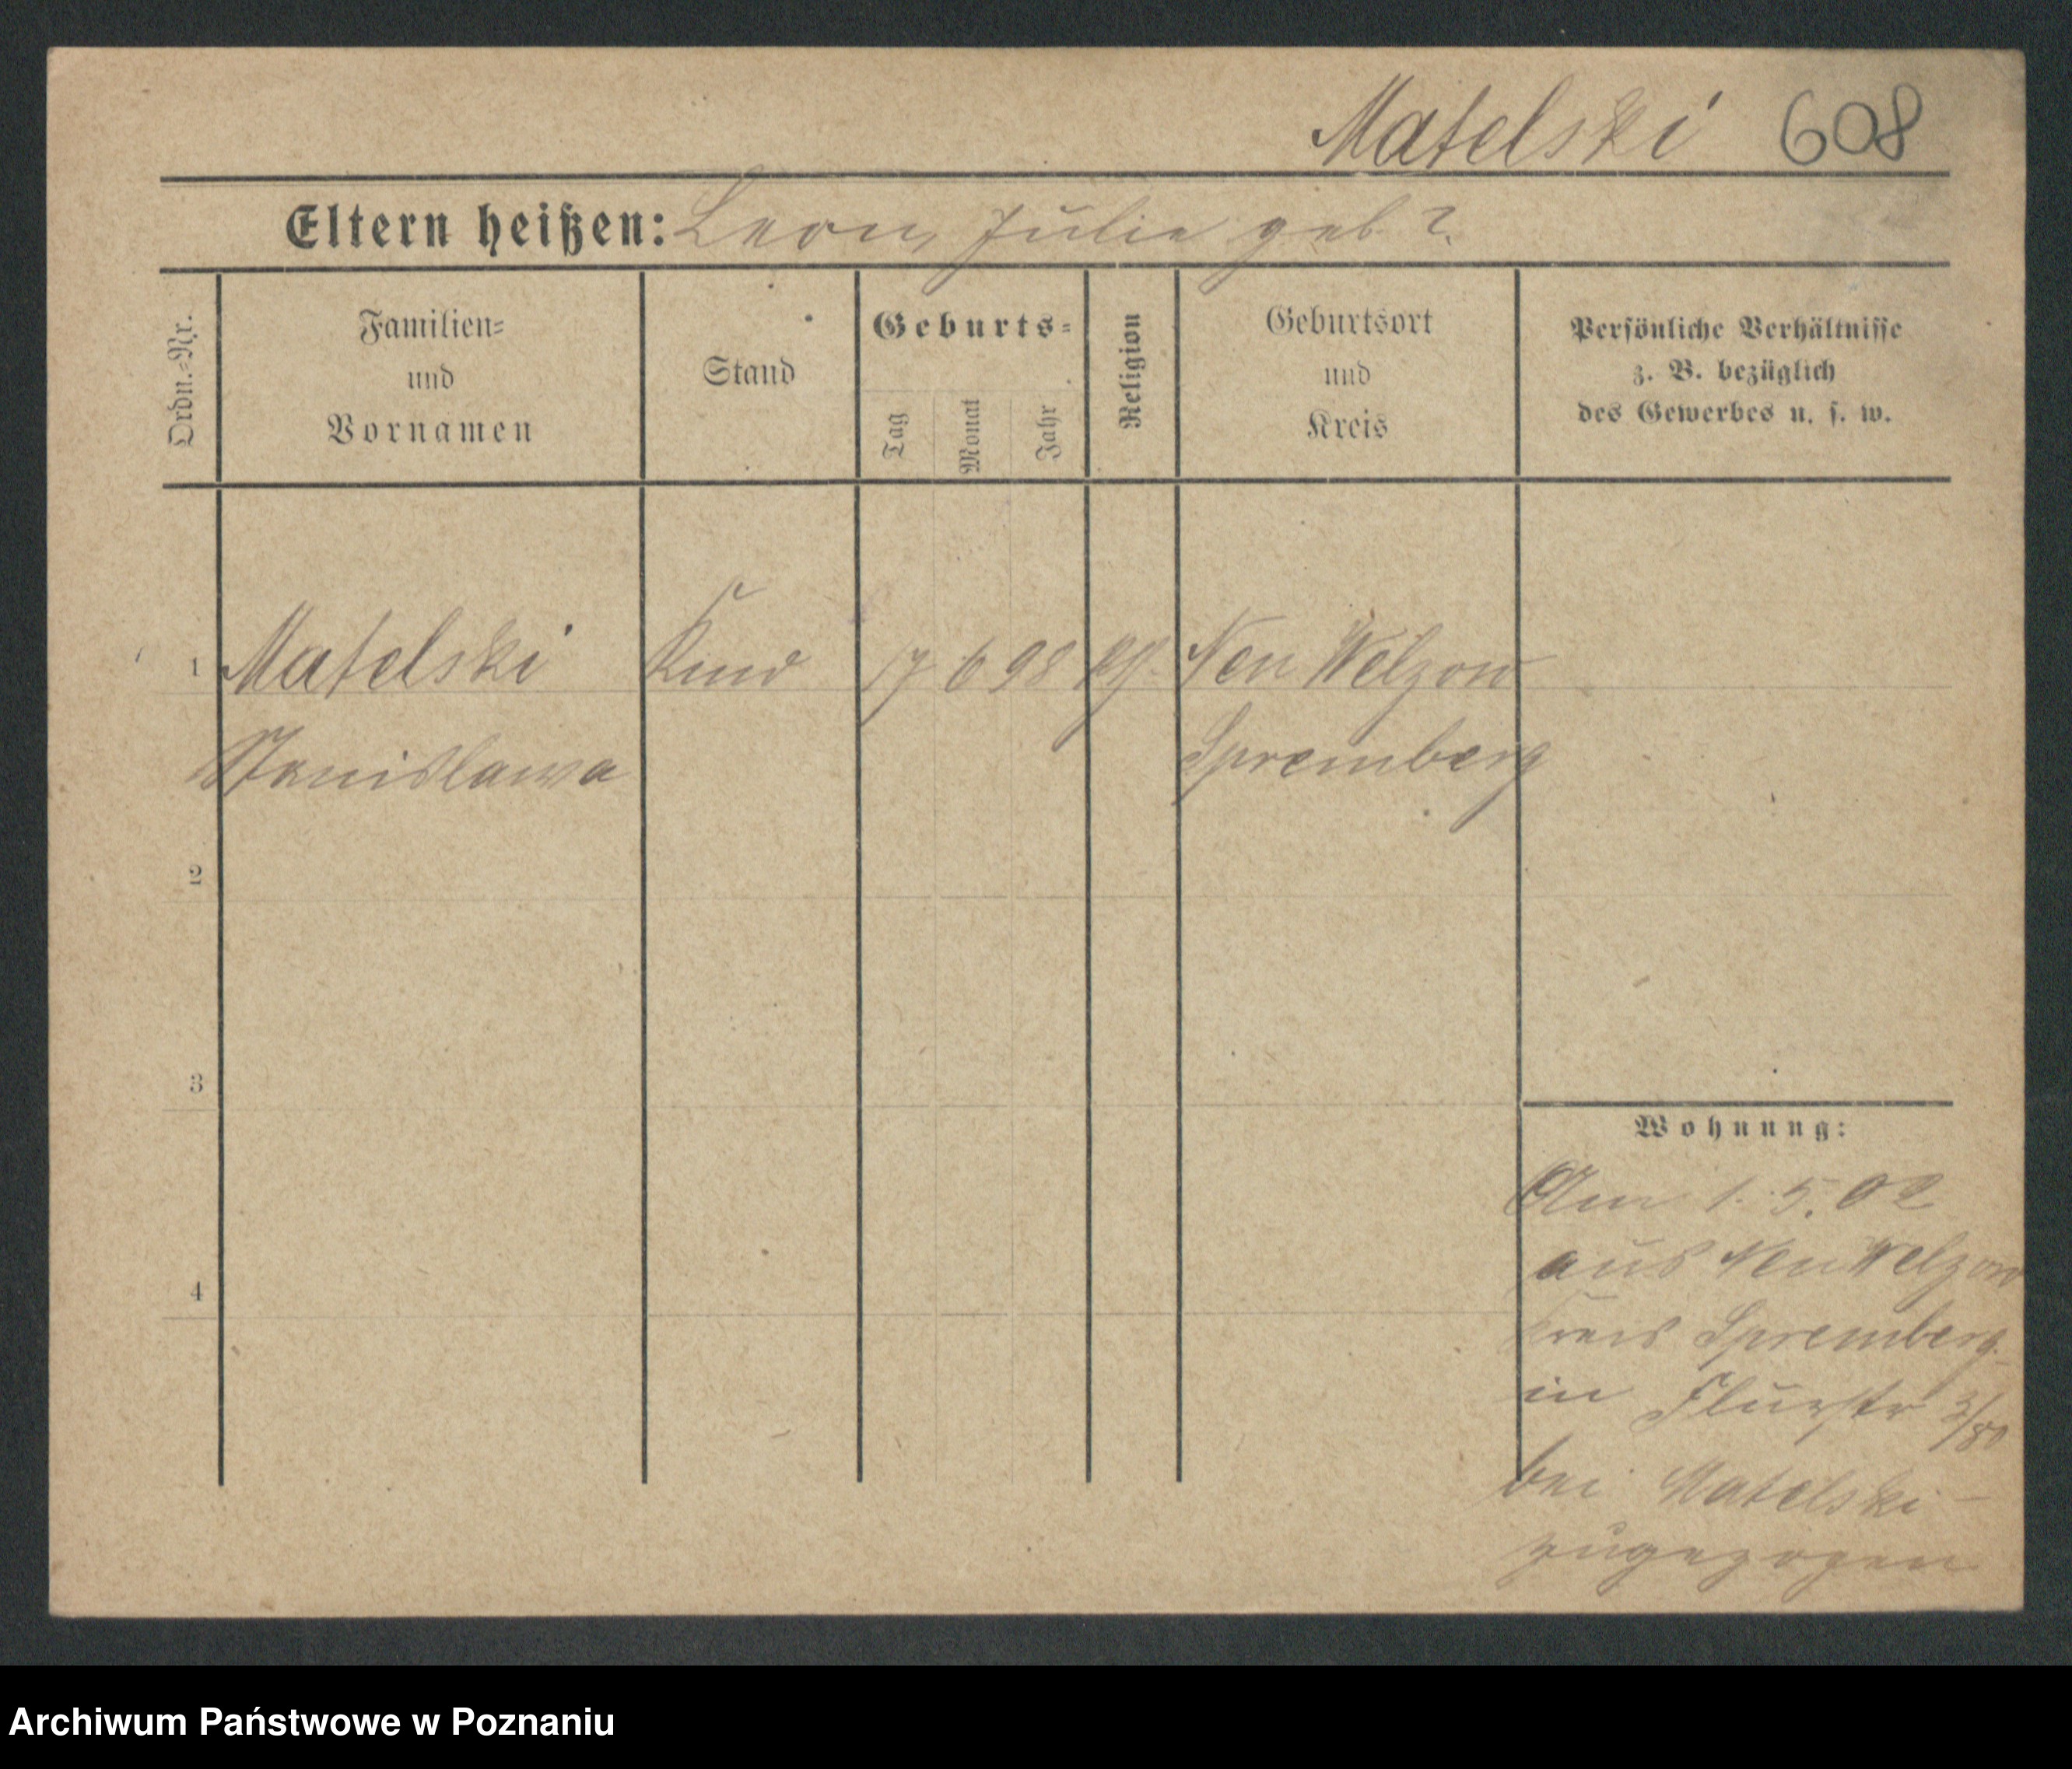 Matelski 608
Eltern heißen: Leon, Julie geb ?.
Ordn.-Nr.
Familien-
und
Vornamen
Stand
Geburts-
Tag
Monat
Jahr
Religion
Geburtsort
und
Kreis
Persönliche Verhältnisse
z. B. bezüglich
des Gewerbes u. s. w.
1 Matelski Kind 17 6 98 Neu Welzow
Stanislawa Spremberg
2
3
Wohnung:
Am 1. 5. 02
aus Neu Welzow
4
Kreis Spremberg
in Flurstr
bei Matelski
zugezogen
Archiwum Państwowe w Poznaniu